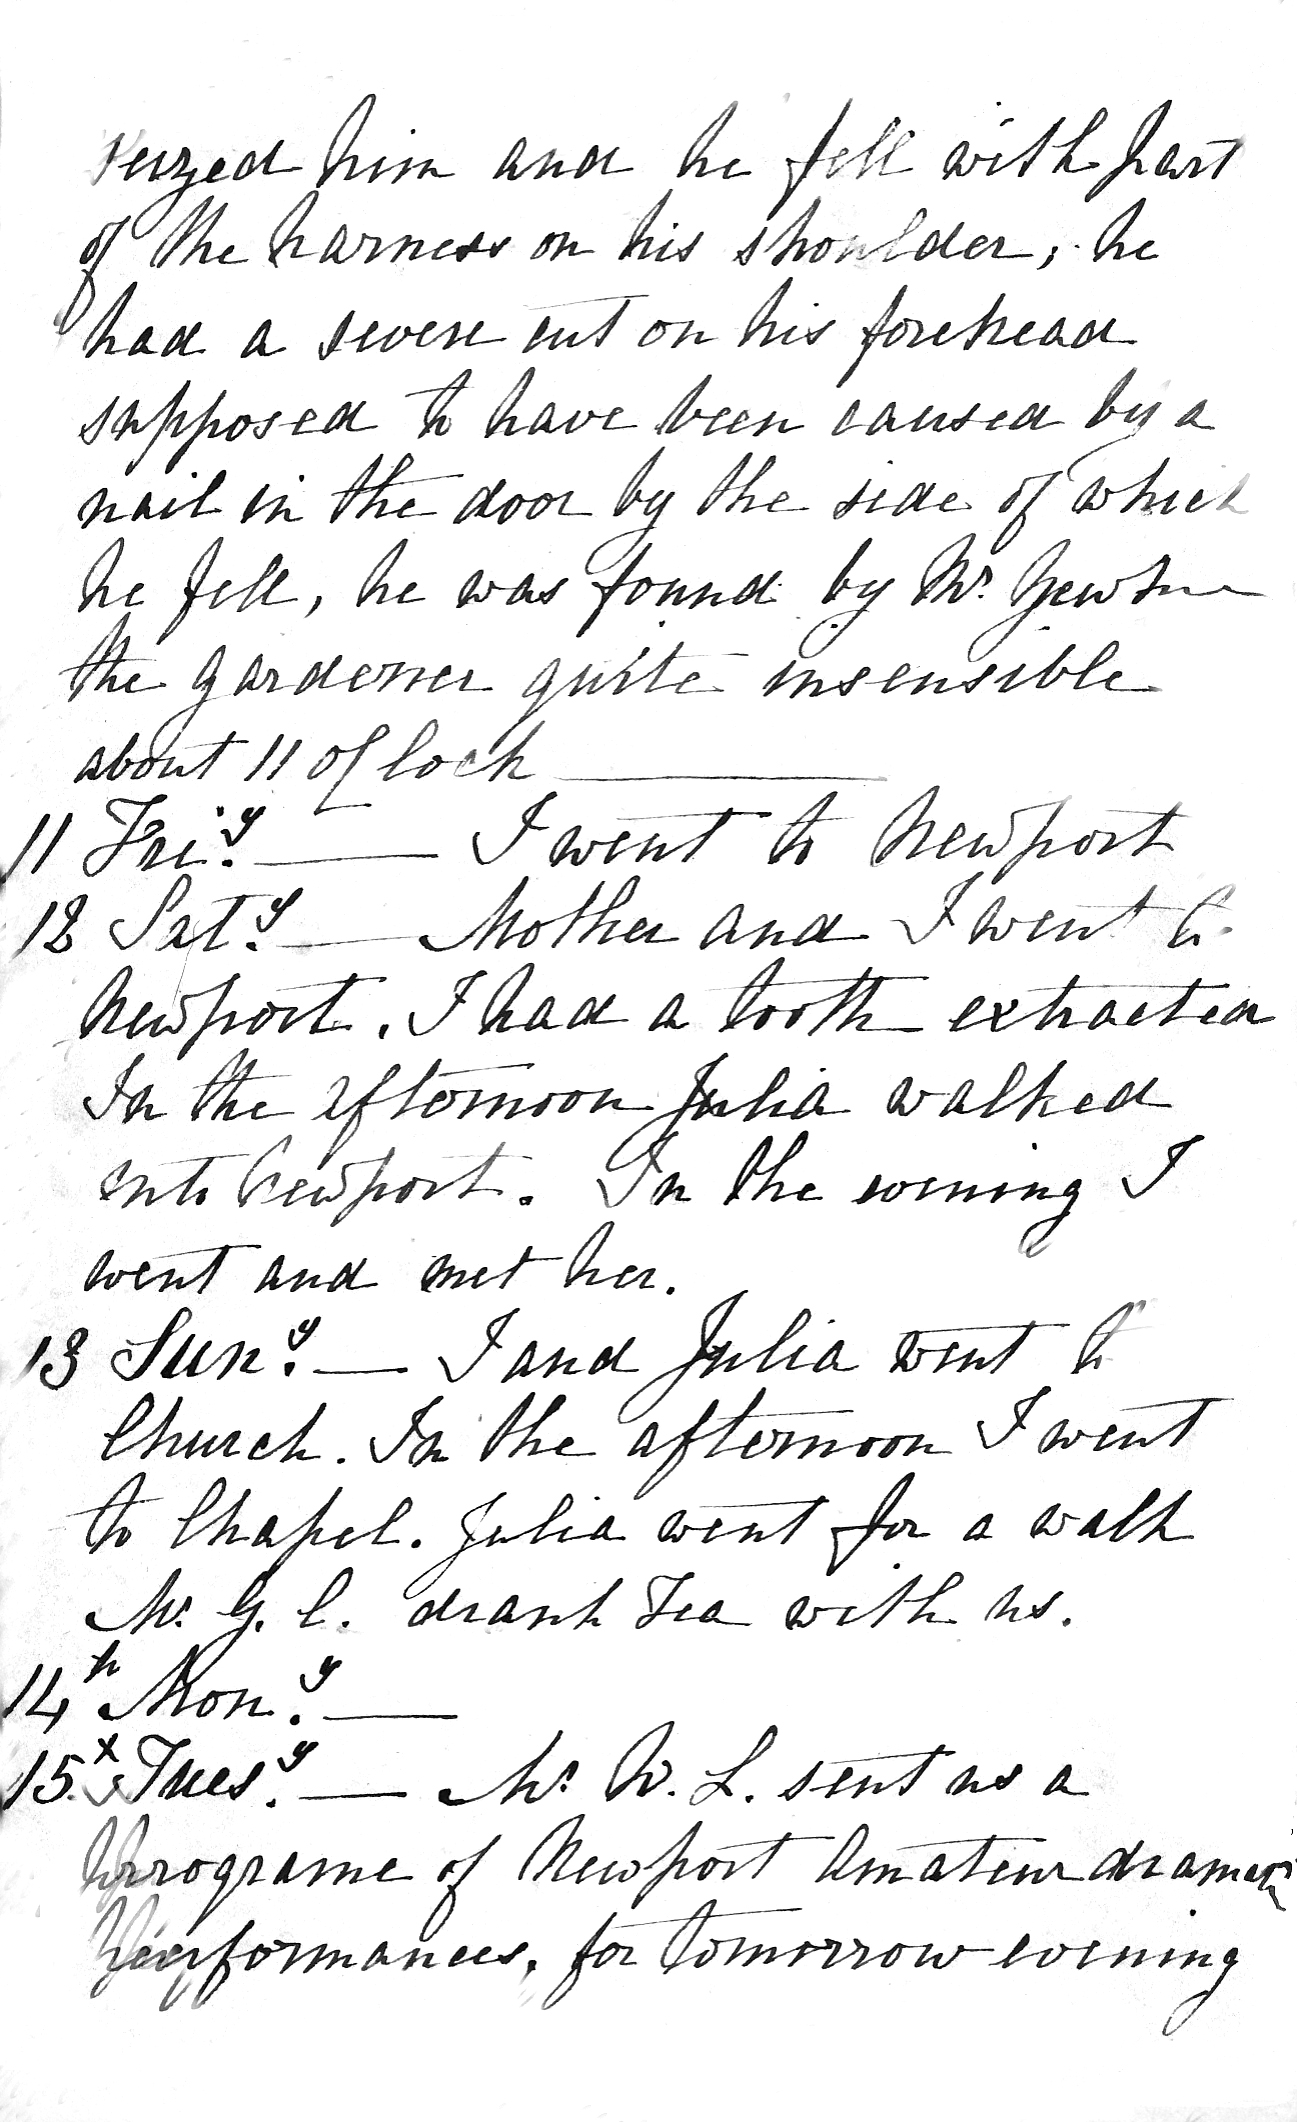 seized him and he fell with part
of the harness on his shoulder; he
had a severe cut on his forehead
supposed to have been caused by a
nail in the door by the side of which
he fell, he was found by Mr.
the gardener quite insensible
about 11 of Clock ———
11 Fri.y —— I went to Newport
12 Sat.y —— Mother and I went to
Newport. I had a tooth extracted
In the afternoon Julia walked
into Newport. In the evening I
went and met her.
13 Sun.y — I and Julia went to
Church. In the afternoon I went
to Chapel. Julia went for a walk
Mr. G. C. drank Tea with us.
14th Mon.y ——
15.x Tues.y — Mr W. L. sent us a
Programe of Newport Amateur dramatic
Performances, for tomorrow evening